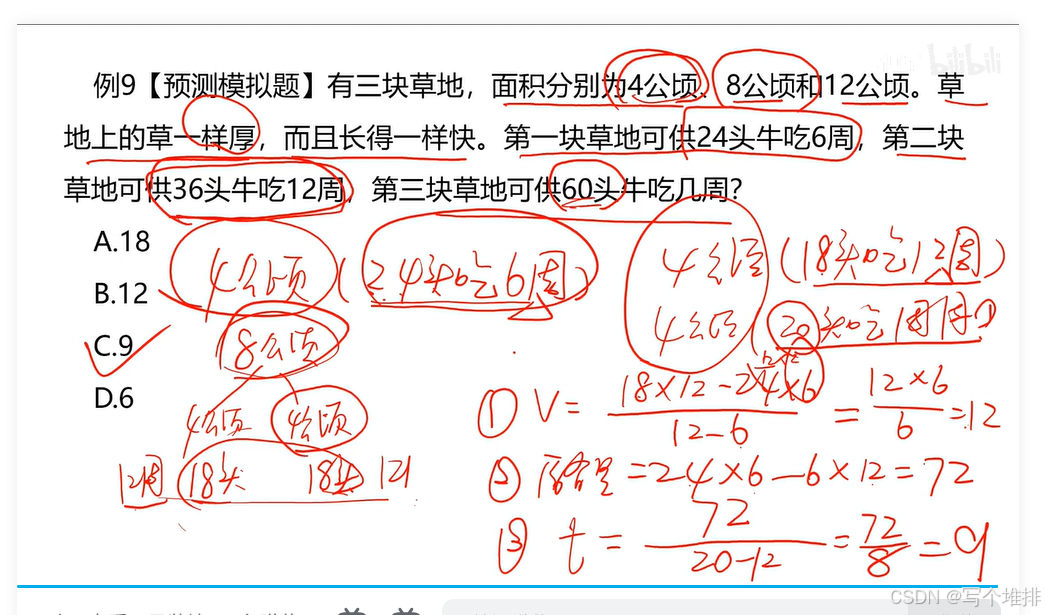 bilibili
例9【预测模拟题】有三块草地，面积分别为4公顷、8公顷和12公顷。草
地上的草一样厚，而且长得一样快。第一块草地可供24头牛吃6周，第二块
草地可供36头牛吃12周，第三块草地可供60头牛吃几周?
A.18
B.12
C.9
D.6
4公顷（24头吃6周）
8公顷
4公顷 4公顷
12周 18头 18头 12
4公顷（18头吃12周）
4公顷（20头吃 周）
① V= 18×12-24×6 / 12-6 = 12×6 / 6 =12
② 原含量=24×6-6×12=72
③ t= 72 / 20-12 = 72 / 8 =9
CSDN @写个堆排